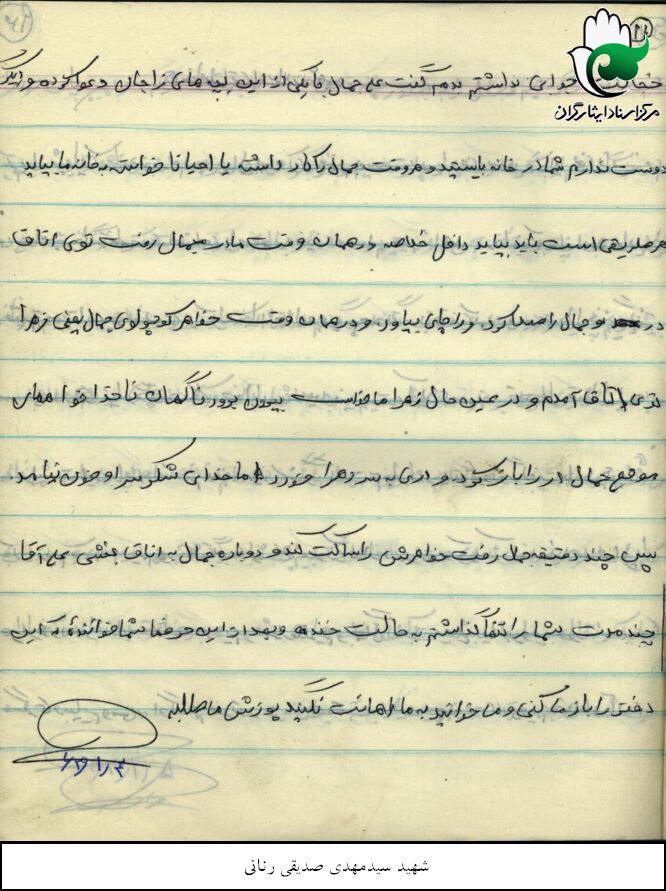 ۲۱
مرکز اسناد ایثارگران
خجالت داشتم بدم گفت علی جمال با یکی از این بچه های زاجان دعوا کرده و دیگر
دوست ندارم شما در خانه بایستید و هر وقت جمال را کار داشته یا احیانا خواستی به خانه ما بیاید
هر طریقی است باید بیاید داخل خلاصه در همان وقت مادر جمال رفت توی اتاق
در و جمال را صدا کرد و را چای بیاور و در همان وقت خواهر کوچولوی جمال یعنی زهرا
توی اتاق آمدم و در عین حال زهرا ماخواست بیرون برود ناگهان ناخدا خواههای
موقع جمال در را باز کرد و دری به سر زهرا خورد اما خدای شکر سر او خون نیامد
سپس چند دقیقه جمال رفت خواهرش را ساکت کند و دوباره جمال به اتاق بخشی علی آقا
چند مدت شما را تنها گذاشتم به حالت خنده و بعد از این حرفا شما خواننده که این
دفتر را باز ما کنی و ما خوانید به ما اهانت نگیید پوزش ما طلبه
شهید سیدمهدی صدیقی رنانی